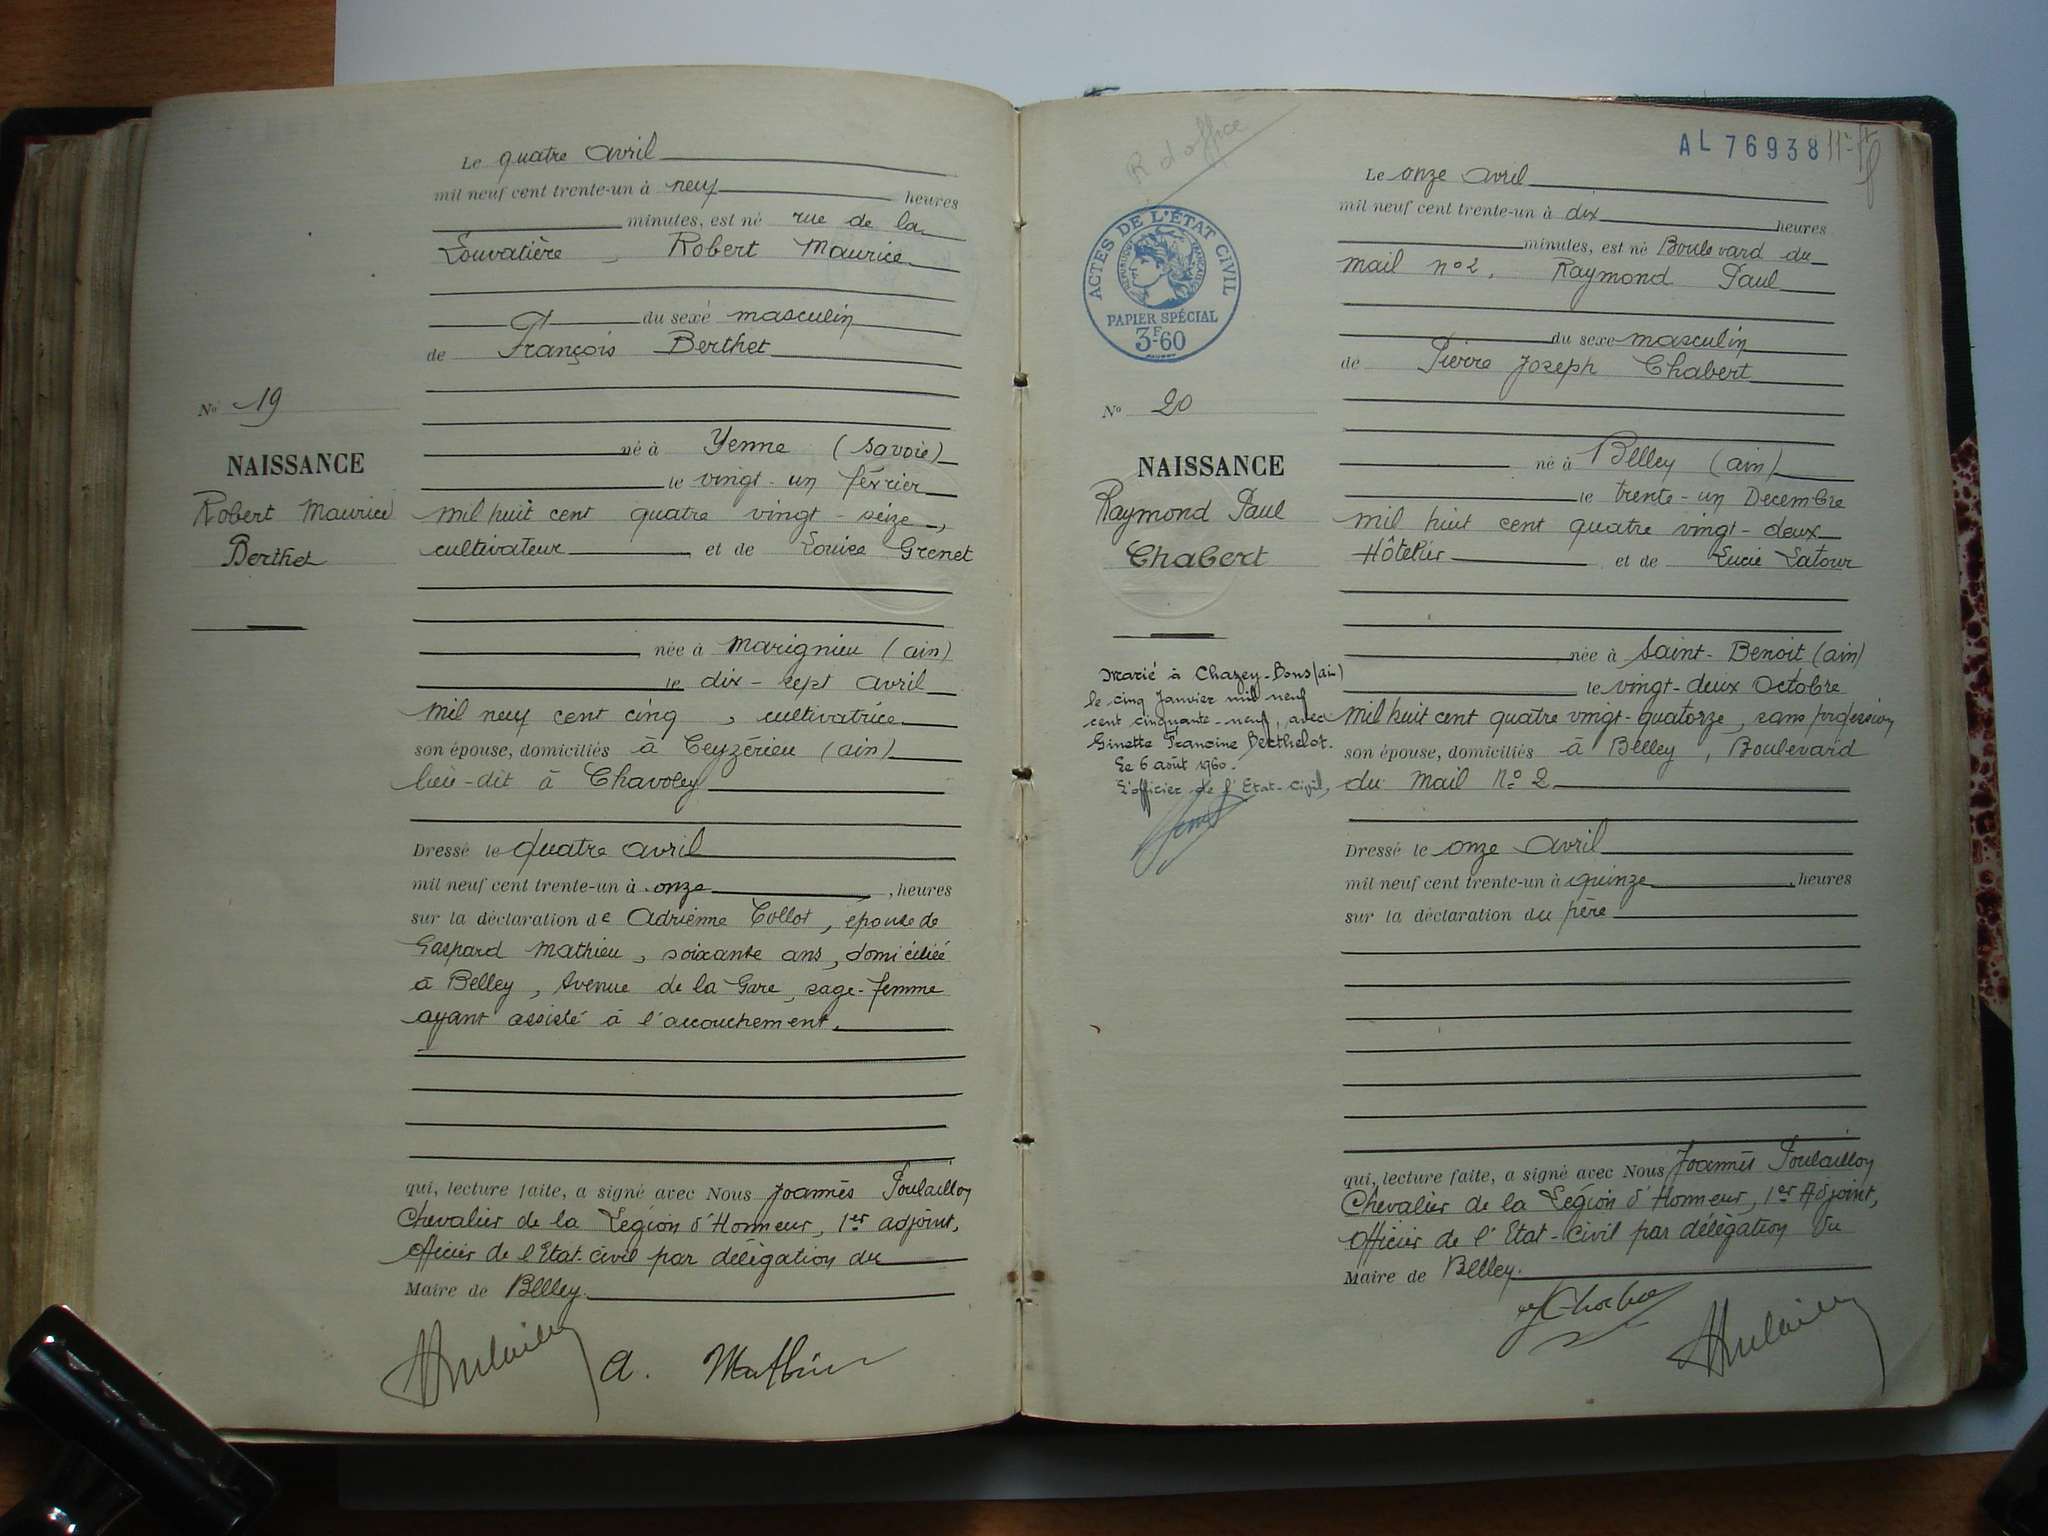 Le quatre avril
mil neuf cent trente-un à neuf heures
minutes, est né rue de la
Louvatière, Robert Maurice
du sexe masculin
de François Berthet
né à Yenne (Savoie)
le vingt-un février
mil huit cent quatre vingt-seize,
cultivateur et de Louise Grenet
née à Marignieu (ain)
le dix-sept avril
mil neuf cent cinq, cultivatrice
son épouse, domiciliés à Ceyzérieu (ain)
lieu-dit à Chavoley
Dressé le quatre avril
mil neuf cent trente-un à onze, heures
sur la déclaration de Adrienne Collot, épouse de
Gaspard Mathieu, soixante ans, domiciliée
à Belley, Avenue de la Gare, sage-femme
ayant assisté à l'accouchement.
qui, lecture faite, a signé avec Nous Joannès Poulailloy
Chevalier de la Légion d'Honneur, 1er adjoint,
officier de l'Etat-civil par délégation du
Maire de Belley.
A. Mathieu
No 19
NAISSANCE
Robert Maurice
Berthet
R d'office
AL 76938
ACTES DE L'ÉTAT CIVIL
RÉPUBLIQUE FRANÇAISE
PAPIER SPÉCIAL
3F60
No 20
NAISSANCE
Raymond Paul
Chabert
Marié à Chazey-Bons (ain)
le cinq Janvier mil neuf
cent cinquante-neuf, avec
Ginette Francine Berthelot.
Le 6 août 1960.
L'officier de l'Etat-Civil,
Le onze avril
mil neuf cent trente-un à dix heures
minutes, est né Boulevard du
Mail no 2, Raymond Paul
du sexe masculin
de Pierre Joseph Chabert
né à Belley (ain)
le trente-un Decembre
mil huit cent quatre vingt-deux
Hôtelier et de Lucie Latour
née à Saint-Benoit (ain)
le vingt-deux Octobre
mil huit cent quatre vingt-quatorze, sans profession
son épouse, domiciliés à Belley, Boulevard
du Mail No 2
Dressé le onze avril
mil neuf cent trente-un à quinze, heures
sur la déclaration du père
qui, lecture faite, a signé avec Nous Joannès Poulailloy
Chevalier de la Légion d'Honneur, 1er Adjoint,
Officier de l'Etat-Civil par délégation du
Maire de Belley.